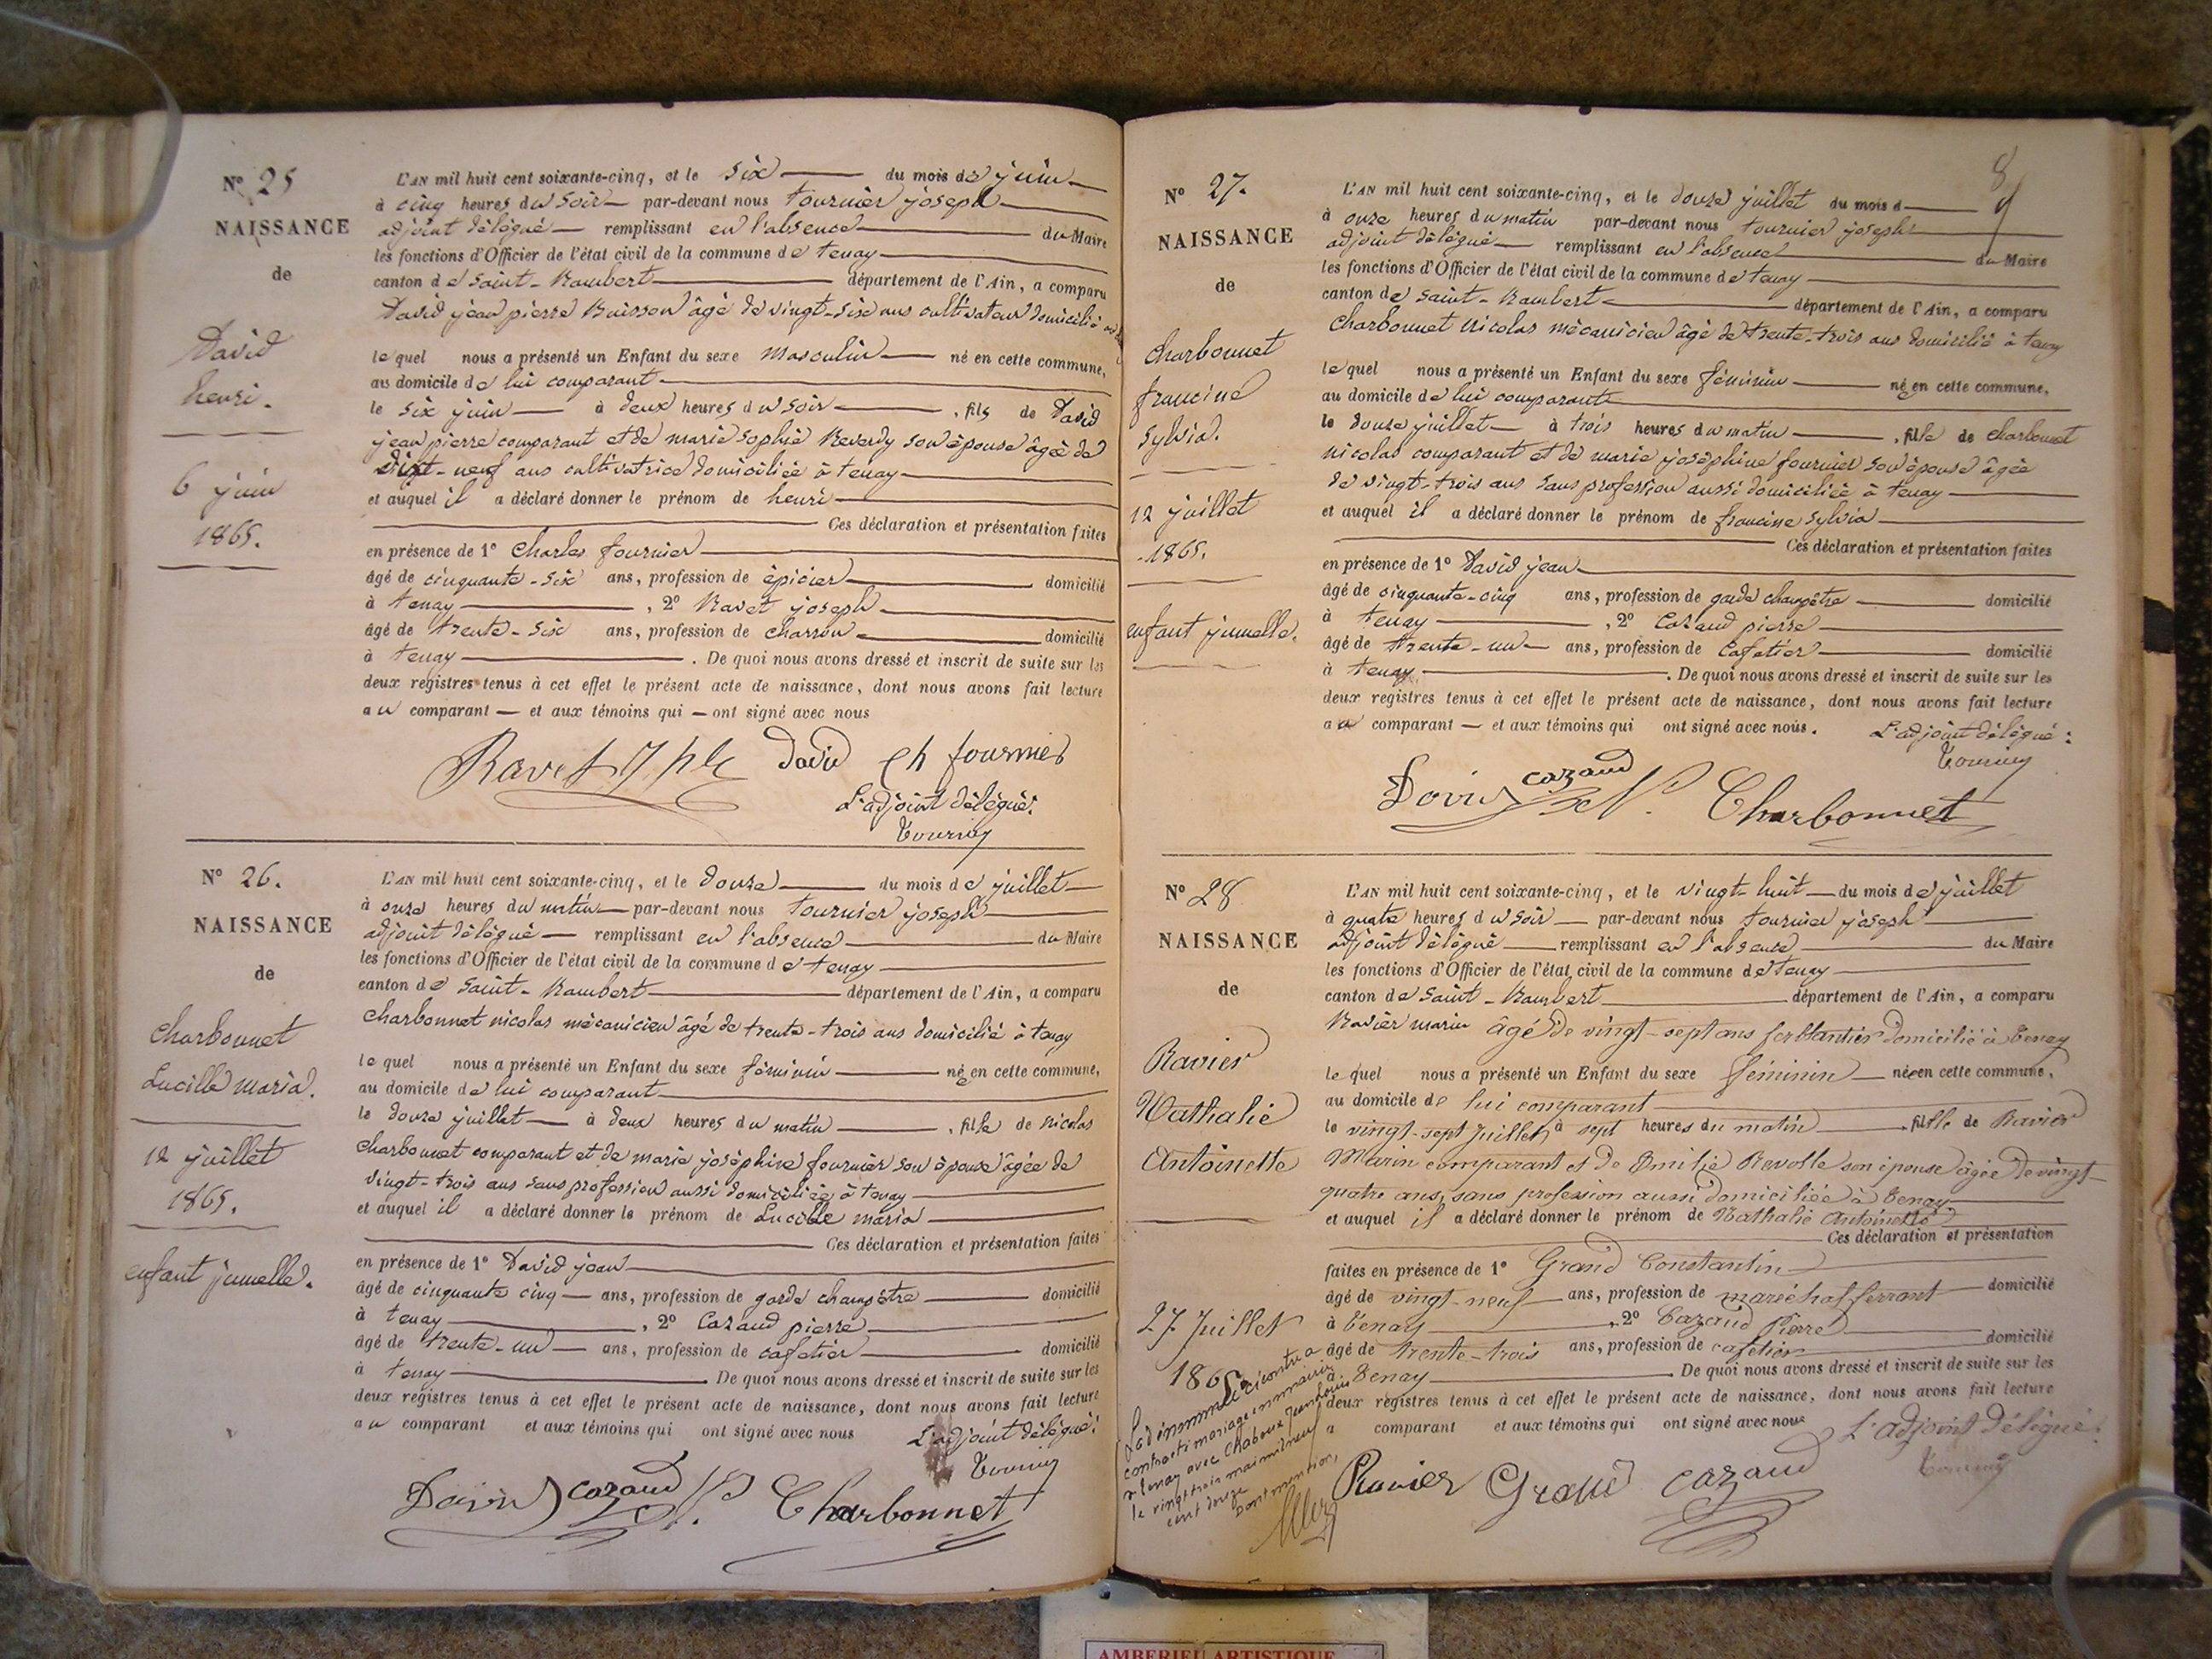 N° 25
NAISSANCE
de
David
henri.
6 juin
1865.
L'AN mil huit cent soixante-cinq, et le six du mois de juin
à cinq heures du soir par-devant nous tournier joseph
adjoint délégué remplissant en l'absence du Maire
les fonctions d'Officier de l'état civil de la commune de tenay
canton de Saint-Rambert département de l'Ain, a comparu
David jean pierre Buisson âgé de vingt-six ans cultivateur domicilié
lequel nous a présenté un Enfant du sexe Masculin né en cette commune,
au domicile de lui comparant
le six juin à deux heures du soir, fils de David
jean pierre comparant et de marie Sophie Reverdy son épouse âgée de
vingt-neuf ans cultivatrice domiciliée à tenay
et auquel il a déclaré donner le prénom de henri
Ces déclaration et présentation faites
en présence de 1° Charles fournier
âgé de cinquante-six ans, profession de épicier domicilié
à tenay, 2° Ravet joseph
âgé de trente-six ans, profession de charron domicilié
à tenay. De quoi nous avons dressé et inscrit de suite sur les
deux registres tenus à cet effet le présent acte de naissance, dont nous avons fait lecture
au comparant — et aux témoins qui — ont signé avec nous
Ravet Jph David Ch fournier
L'adjoint délégué:
Tournier
N° 26.
NAISSANCE
de
Charbonnet
Lucille maria.
12 juillet
1865.
enfant jumelle.
L'AN mil huit cent soixante-cinq, et le douze du mois de juillet
à onze heures du matin par-devant nous tournier joseph
adjoint délégué remplissant en l'absence du Maire
les fonctions d'Officier de l'état civil de la commune de tenay
canton de Saint-Rambert département de l'Ain, a comparu
Charbonnet nicolas mécanicien âgé de trente-trois ans domicilié à tenay
lequel nous a présenté un Enfant du sexe féminin née en cette commune,
au domicile de lui comparant
le douze juillet à deux heures du matin, fille de nicolas
Charbonnet comparant et de marie joséphine fournier son épouse âgée de
vingt-trois ans sans profession aussi domiciliée à tenay
et auquel il a déclaré donner le prénom de Lucille maria
Ces déclaration et présentation faites
en présence de 1° David jean
âgé de cinquante cinq ans, profession de garde champêtre domicilié
à tenay, 2° Cazaud pierre
âgé de trente-un ans, profession de cafetier domicilié
à tenay De quoi nous avons dressé et inscrit de suite sur les
deux registres tenus à cet effet le présent acte de naissance, dont nous avons fait lecture
au comparant et aux témoins qui ont signé avec nous
L'adjoint délégué:
Tournier
David cazaud Charbonnet
8
N° 27.
NAISSANCE
de
Charbonnet
francine
Sylvia.
12 juillet
1865.
enfant jumelle.
L'AN mil huit cent soixante-cinq, et le douze juillet du mois d
à onze heures du matin par-devant nous tournier joseph
adjoint délégué remplissant en l'absence du Maire
les fonctions d'Officier de l'état civil de la commune de tenay
canton de Saint-Rambert département de l'Ain, a comparu
Charbonnet Nicolas mécanicien âgé de trente-trois ans domicilié à tenay
lequel nous a présenté un Enfant du sexe féminin née en cette commune,
au domicile de lui comparant
le douze juillet à trois heures du matin, fille de Charbonnet
nicolas comparant et de marie joséphine fournier son épouse âgée
de vingt-trois ans sans profession aussi domiciliée à tenay
et auquel il a déclaré donner le prénom de francine Sylvia
Ces déclaration et présentation faites
en présence de 1° David jean
âgé de cinquante-cinq ans, profession de garde champêtre domicilié
à tenay, 2° Cazaud pierre
âgé de trente-un ans, profession de Cafetier domicilié
à tenay. De quoi nous avons dressé et inscrit de suite sur les
deux registres tenus à cet effet le présent acte de naissance, dont nous avons fait lecture
au comparant — et aux témoins qui ont signé avec nous.
L'adjoint délégué:
Tournier
David cazaud Charbonnet
N° 28
NAISSANCE
de
Ravier
Nathalie
Antoinette
27 Juillet
1865
La dénommée ci contre a
contracté mariage en mairie
à Tenay avec Chaboux Jean Louis
le vingt trois mai mil neuf
cent douze
Dont mention,
L'AN mil huit cent soixante-cinq, et le vingt-huit du mois de juillet
à quatre heures du soir par-devant nous tournier joseph
adjoint délégué remplissant en l'absence du Maire
les fonctions d'Officier de l'état civil de la commune de tenay
canton de Saint-Rambert département de l'Ain, a comparu
Ravier marin âgé de vingt-sept ans ferblantier domicilié à Tenay
lequel nous a présenté un Enfant du sexe féminin née en cette commune,
au domicile de lui comparant
le vingt-sept Juillet à sept heures du matin, fille de Ravier
Marin comparant et de Emilie Revolle son épouse âgée de vingt-
quatre ans, sans profession aussi domiciliée à Tenay
et auquel il a déclaré donner le prénom de Nathalie Antoinette
Ces déclaration et présentation
faites en présence de 1° Grand Constantin
âgé de vingt-neuf ans, profession de maréchal ferrant domicilié
à Tenay, 2° Cazaud Pierre
âgé de trente-trois ans, profession de cafetier domicilié
à Tenay. De quoi nous avons dressé et inscrit de suite sur les
deux registres tenus à cet effet le présent acte de naissance, dont nous avons fait lecture
a comparant et aux témoins qui ont signé avec nous
L'adjoint délégué:
Tournier
Ravier Grand cazaud
AMBERIEU ARTISTIQUE